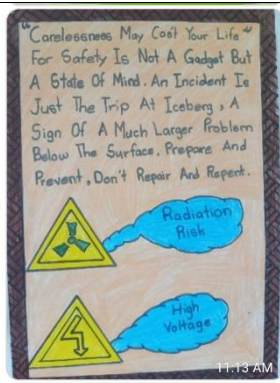 "Carelessness May Cost Your Life"
For Safety Is Not A Gadget But
A State Of Mind. An Incident Is
Just The Trip At Iceberg, A
Sign Of A Much Larger Problem
Below The Surface. Prepare And
Prevent, Don't Repair And Repent.
Radiation
Risk
High
Voltage
11:13 AM